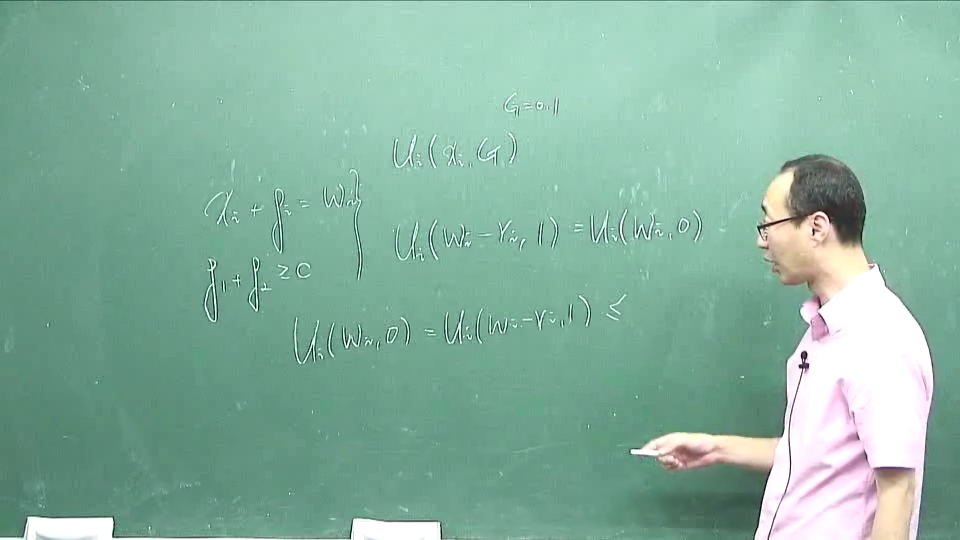 G=0,1
U_i(x_i, G)
x_i + g_i = W_i }
U_i(W_i − r_i, 1) = U_i(W_i, 0)
g_1 + g_2 ≥ C
U_i(W_i, 0) = U_i(W_i − r_i, 1) ≤